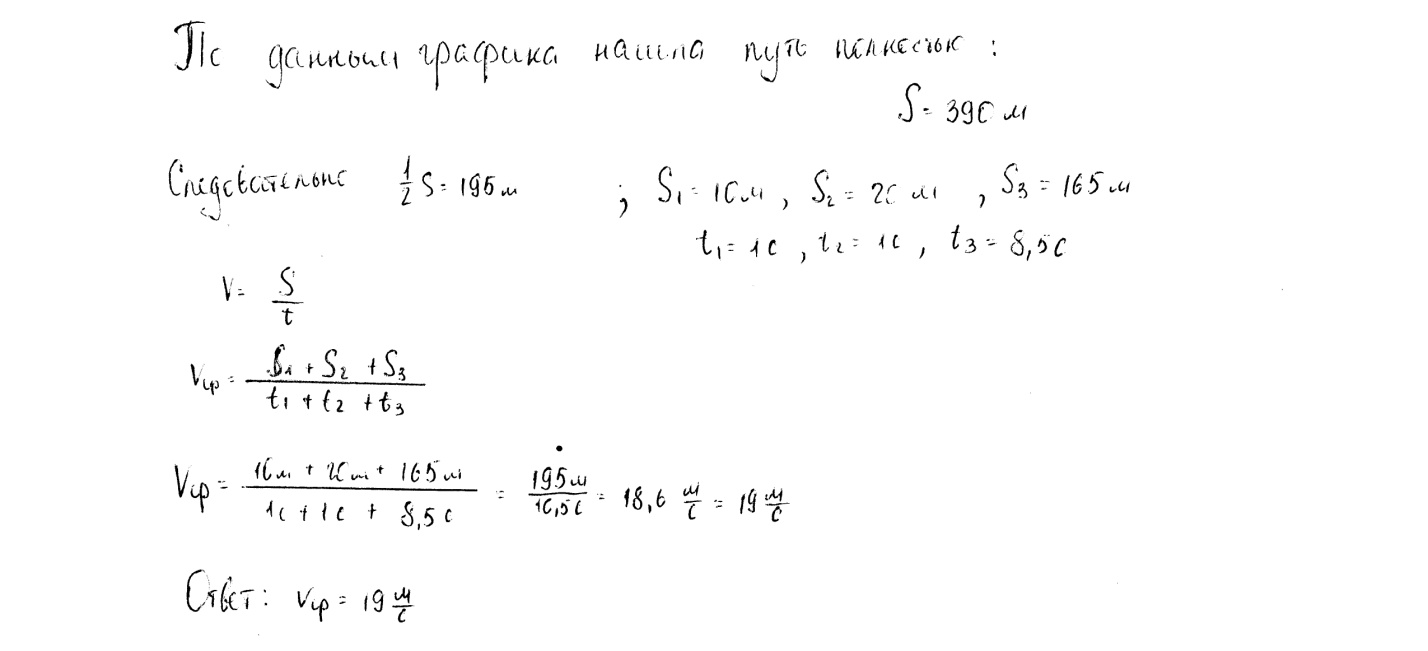 По данным графика нашла путь полностью :
S = 390 м
Следовательно 1/2 S = 195 м ; S₁ = 10 м , S₂ = 20 м , S₃ = 165 м
t₁ = 1с , t₂ = 1с , t₃ = 8,5с
V = S/t
Vср = (S₁ + S₂ + S₃)/(t₁ + t₂ + t₃)
Vср = (10м + 20м + 165м)/(1с + 1с + 8,5с) = 195м/10,5с = 18,6 м/с = 19 м/с
Ответ: Vср = 19 м/с